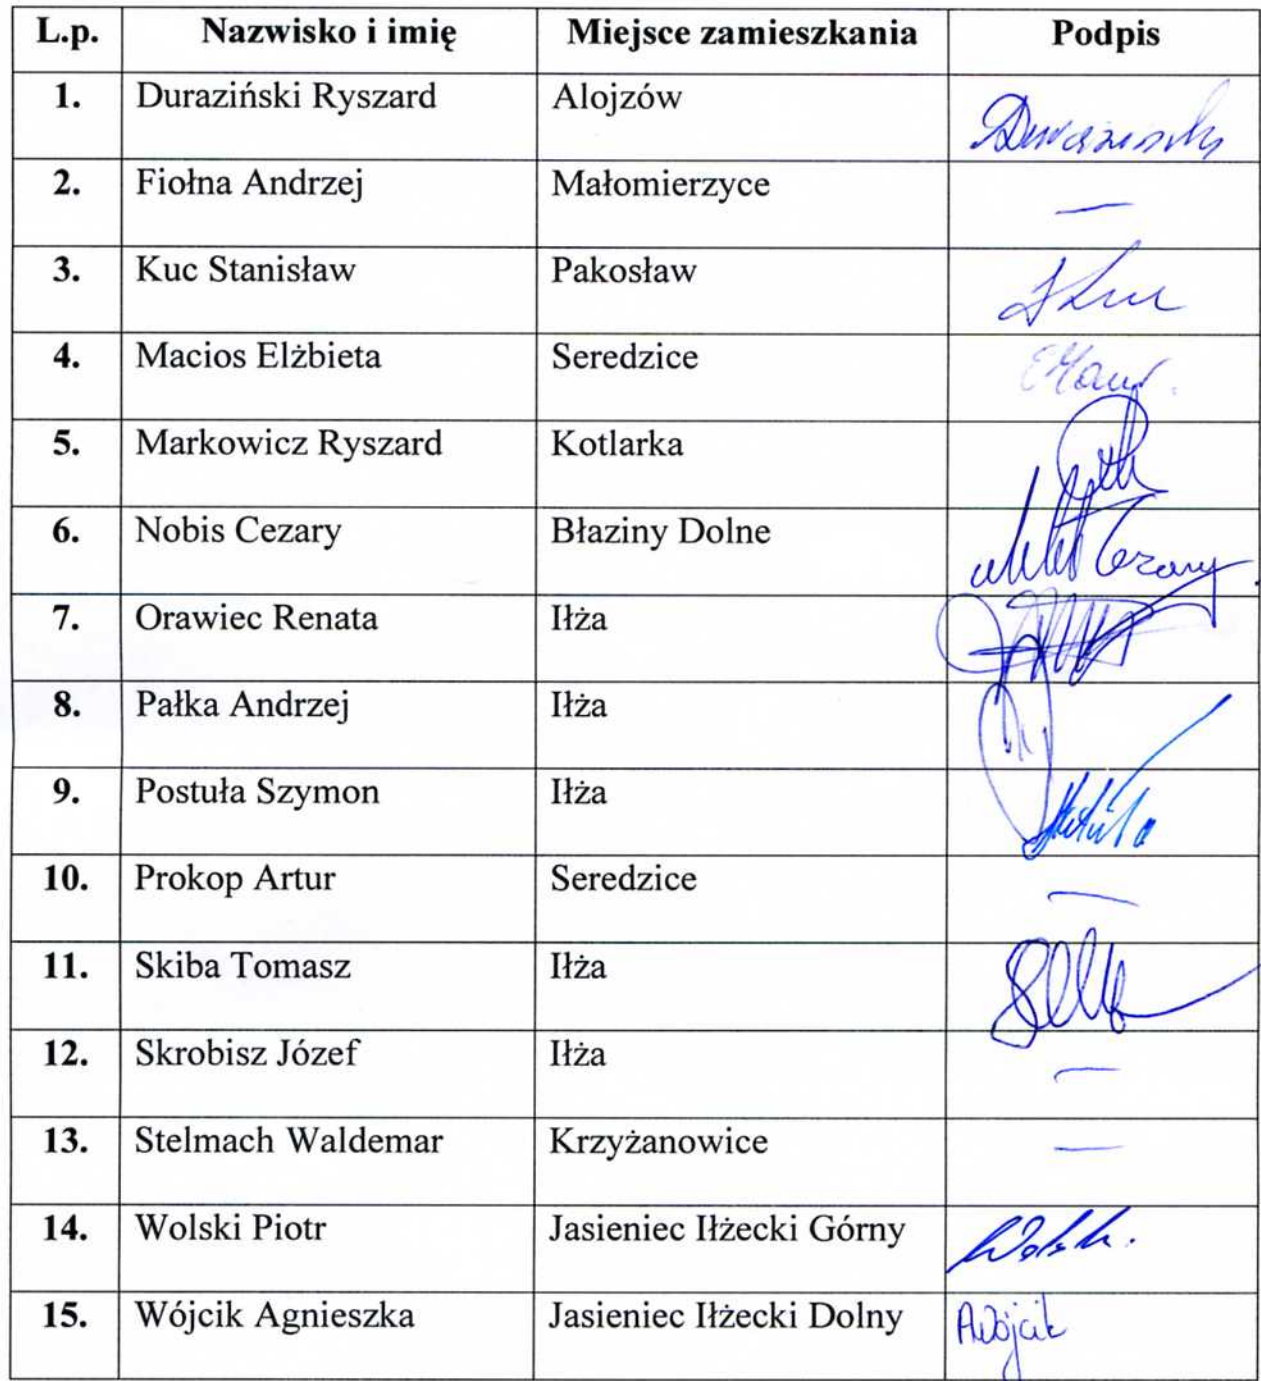 L.p. Nazwisko i imię Miejsce zamieszkania Podpis
1. Duraziński Ryszard Alojzów
2. Fiołna Andrzej Małomierzyce —
3. Kuc Stanisław Pakosław
4. Macios Elżbieta Seredzice
5. Markowicz Ryszard Kotlarka
6. Nobis Cezary Błaziny Dolne Cezary
7. Orawiec Renata Iłża
8. Pałka Andrzej Iłża
9. Postuła Szymon Iłża
10. Prokop Artur Seredzice —
11. Skiba Tomasz Iłża
12. Skrobisz Józef Iłża —
13. Stelmach Waldemar Krzyżanowice —
14. Wolski Piotr Jasieniec Iłżecki Górny
15. Wójcik Agnieszka Jasieniec Iłżecki Dolny AWójcik